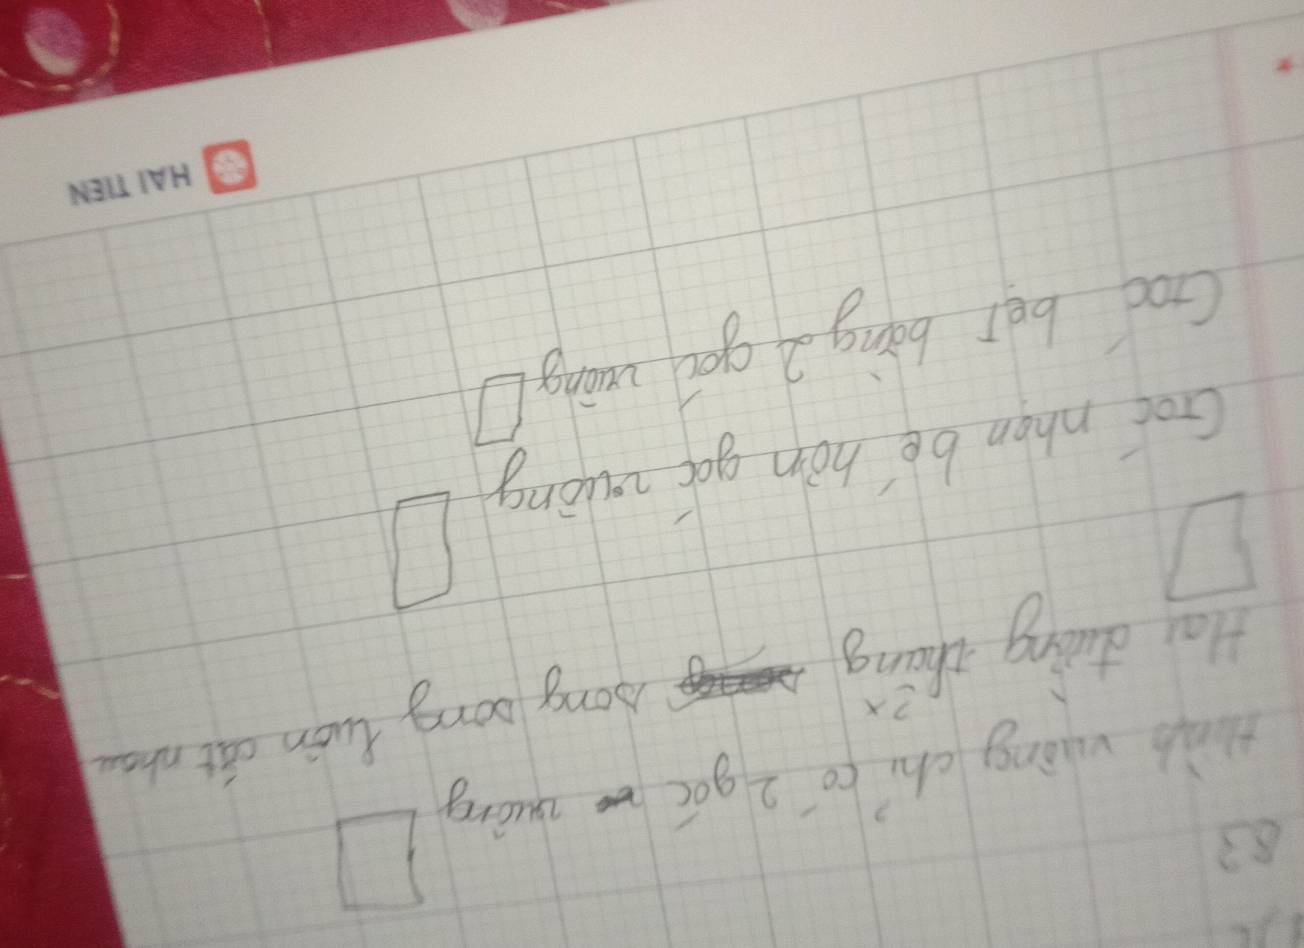 B3
Hình vuông chỉ có 2 góc vuông
Hai đường thẳng song song luôn cắt nhau
Góc nhọn bé hơn góc vuông
Góc bẹt bằng 2 góc vuông
HAI TIEN